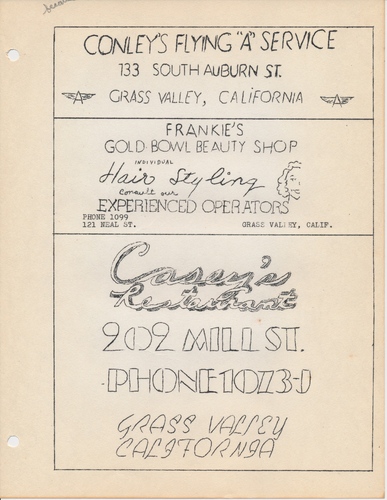 CONLEY'S FLYING "A" SERVICE
133 SOUTH AUBURN ST.
A GRASS VALLEY, CALIFORNIA A
FRANKIE'S
GOLD BOWL BEAUTY SHOP
INDIVIDUAL
Hair Styling
Consult our
EXPERIENCED OPERATORS
PHONE 1099
121 NEAL ST. GRASS VALLEY, CALIF.
Casey's
Restaurant
202 MILL ST.
PHONE 1073-J
GRASS VALLEY
CALIFORNIA